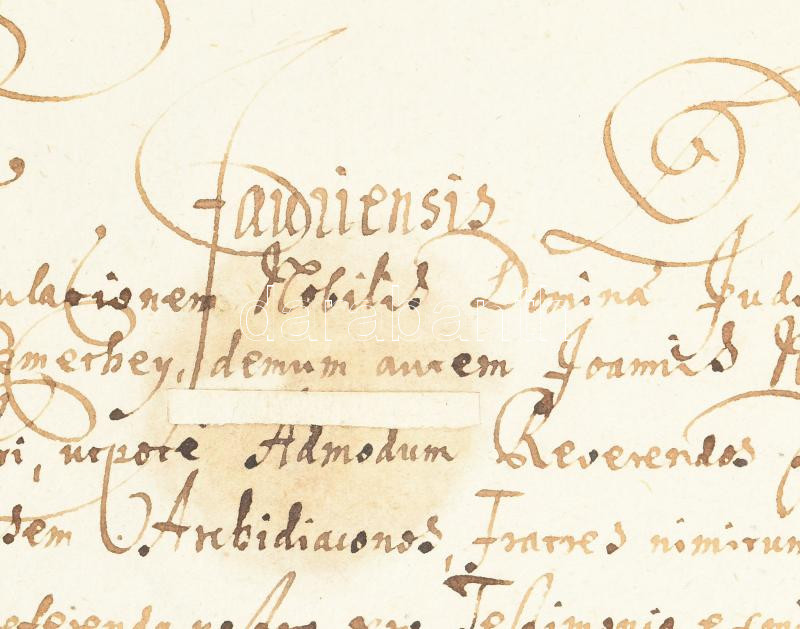 Jauriensis
ulationem Nobilis Domina Jud
emethey, demum autem Joannis
ri, utpote Admodum Reverendos
dem Archidiaconos, Fratres nimirum
Testimonio
darabanth